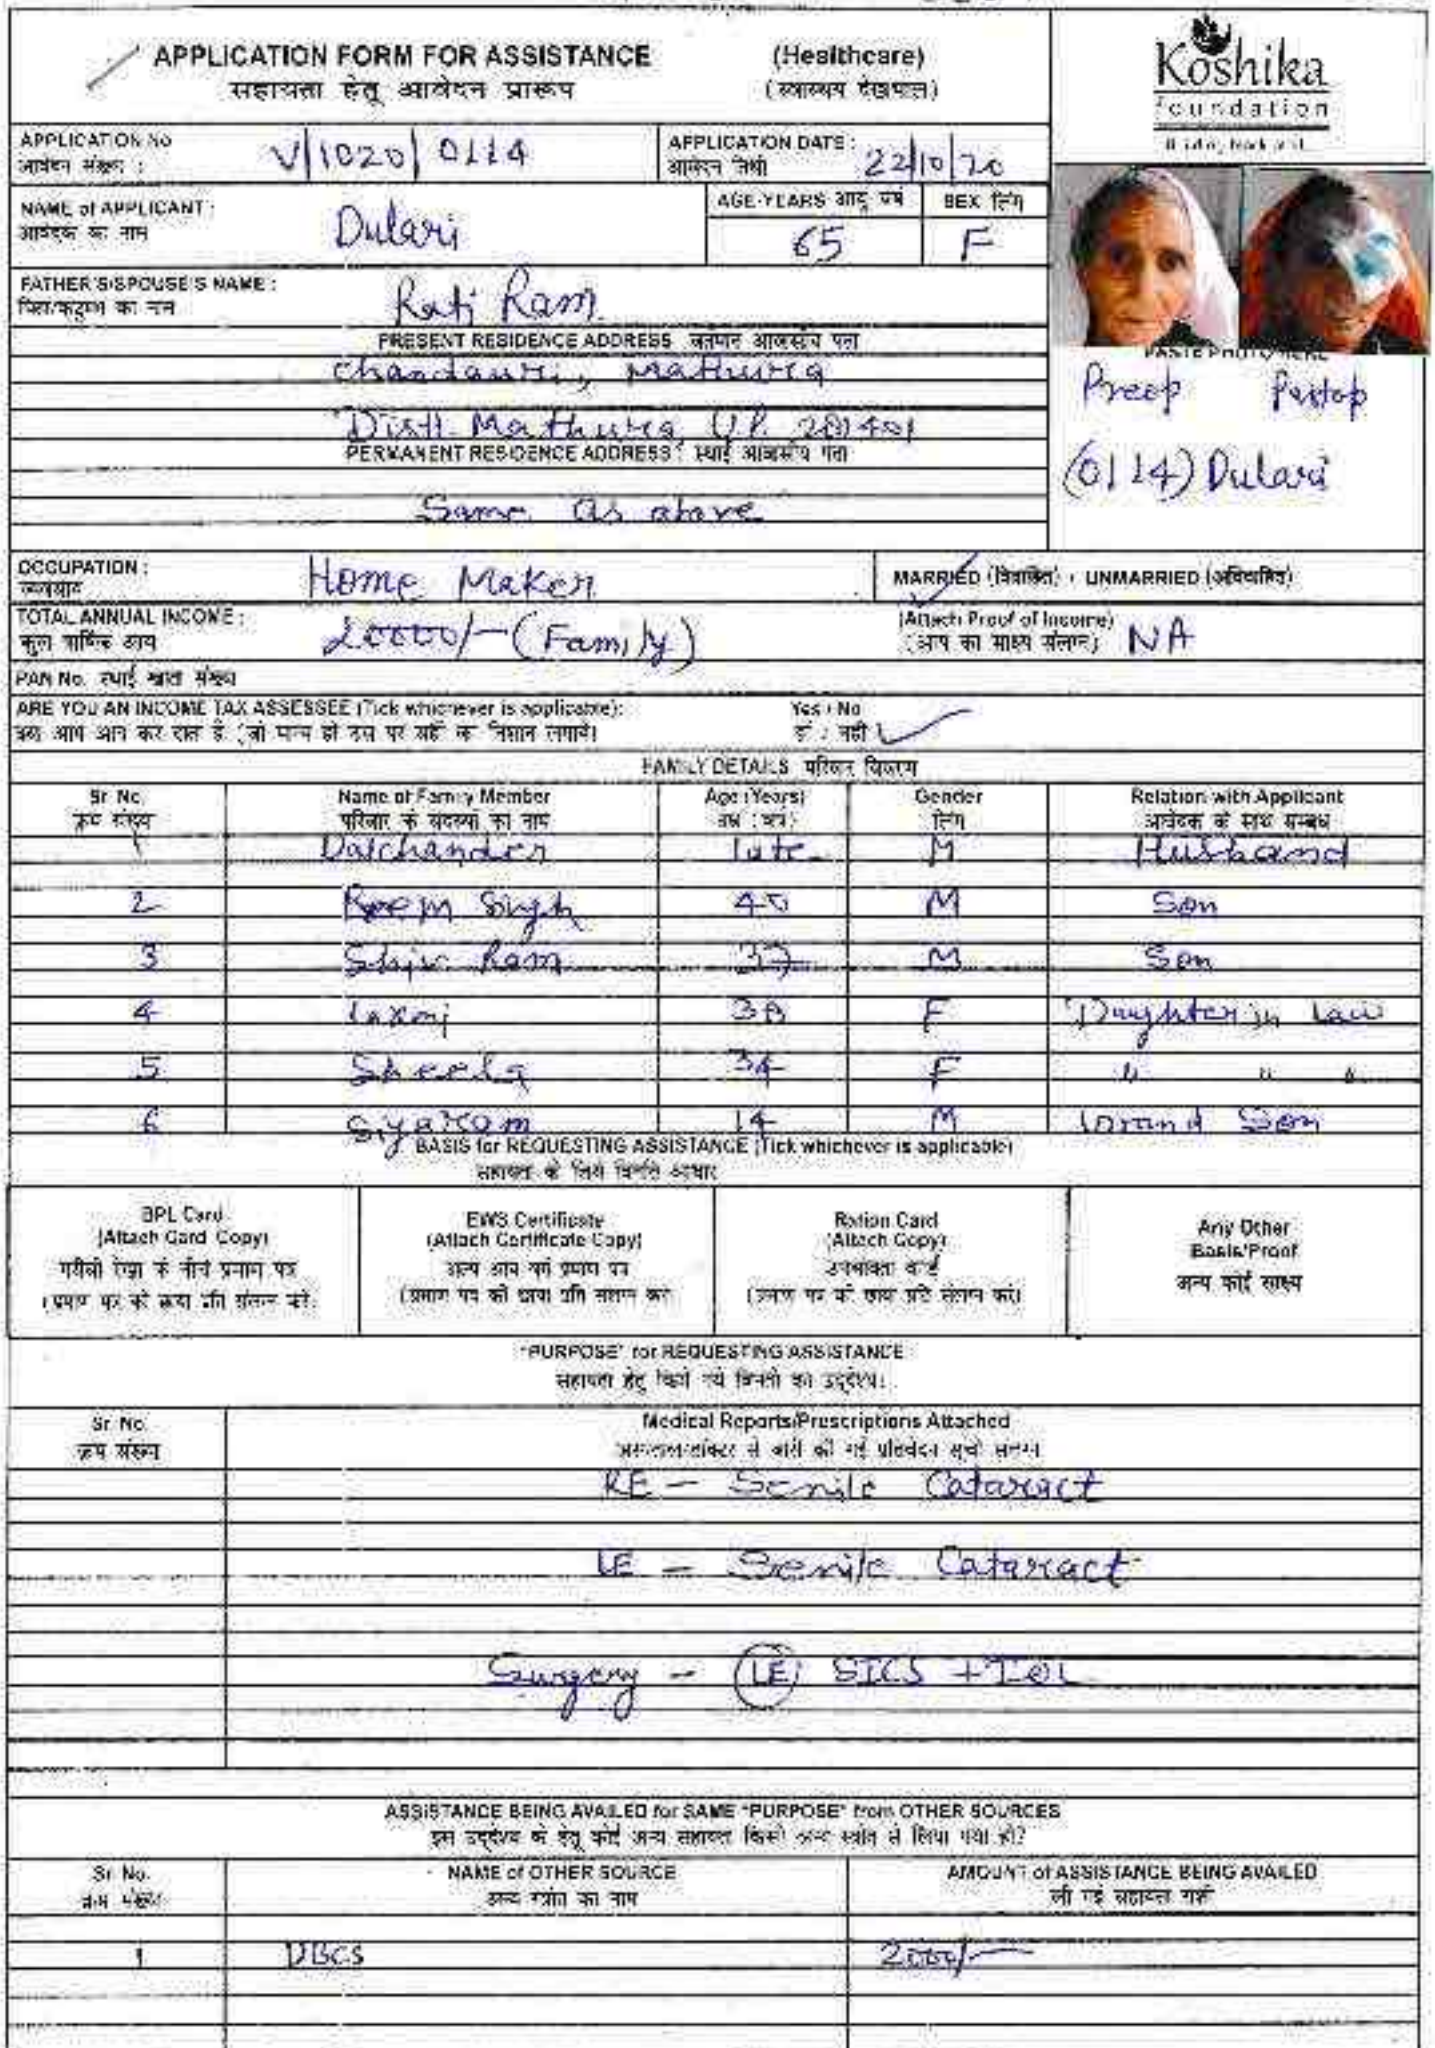 APPLICATION FORM FOR ASSISTANCE (Healthcare)
सहायता हेतु आवेदन प्रारूप (स्वास्थ्य देखभाल)
Koshika
foundation
APPLICATION No
आवेदन संख्या :
V/1020/0114
APPLICATION DATE :
आवेदन तिथी
22/10/20
NAME of APPLICANT :
आवेदक का नाम
Dulari
AGE-YEARS आयु वर्ष
65
SEX लिंग
F
FATHER'S/SPOUSE'S NAME :
पिता/कुटुम्ब का नाम
Rati Ram
PRESENT RESIDENCE ADDRESS वर्तमान आवासीय पता
Chandauri, Mathura
Distt. Mathura, UP. 281401
PERMANENT RESIDENCE ADDRESS : स्थाई आवासीय पता
Same as above
PASTE PHOTO HERE
Preop Postop
(0114) Dulari
OCCUPATION :
व्यवसाय
Home Maker
MARRIED (विवाहित) / UNMARRIED (अविवाहित)
TOTAL ANNUAL INCOME :
कुल वार्षिक आय
20000/- (Family)
(Attach Proof of Income)
(आय का साक्ष्य संलग्न)
NA
PAN No. स्थाई खाता संख्या
ARE YOU AN INCOME TAX ASSESSEE (Tick whichever is applicable):
Yes / No
हां / नहीं
FAMILY DETAILS परिवार विवरण
Sr No. Name of Family Member Age (Years) Gender Relation with Applicant
क्रम संख्या परिवार के सदस्यों का नाम लिंग आवेदक के साथ सम्बंध
1 Dalchander late M Husband
2 Singh 40 M Son
3 Shiv Ram 37 M Son
4 Laxmi 38 F Daughter in Law
5 Sheela 34 F " " "
6 Siyaram 14 M Grand Son
BASIS for REQUESTING ASSISTANCE (Tick whichever is applicable)
BPL Card
(Attach Card Copy)
गरीबी रेखा के नीचे प्रमाण पत्र
(प्रमाण पत्र की छाया प्रति संलग्न करें)
EWS Certificate
(Attach Certificate Copy)
अल्प आय वर्ग प्रमाण पत्र
(प्रमाण पत्र की छाया प्रति संलग्न करें)
Ration Card
(Attach Copy)
उपभोक्ता कार्ड
(प्रमाण पत्र की छाया प्रति संलग्न करें)
Any Other
Basis/Proof
अन्य कोई साक्ष्य
"PURPOSE" for REQUESTING ASSISTANCE
सहायता हेतु किये गये विनती का उद्देश्य:
Sr No. Medical Reports/Prescriptions Attached
क्रम संख्या
RE - Senile Cataract
LE - Senile Cataract
Surgery - (LE) SICS + IOL
ASSISTANCE BEING AVAILED for SAME "PURPOSE" from OTHER SOURCES
इस उद्देश्य के हेतु कोई अन्य सहायता किसी अन्य स्त्रोत से लिया गया हो?
Sr No. NAME of OTHER SOURCE AMOUNT of ASSISTANCE BEING AVAILED
क्रम संख्या अन्य स्त्रोत का नाम ली गई सहायता राशी
1 DBCS 2000/-